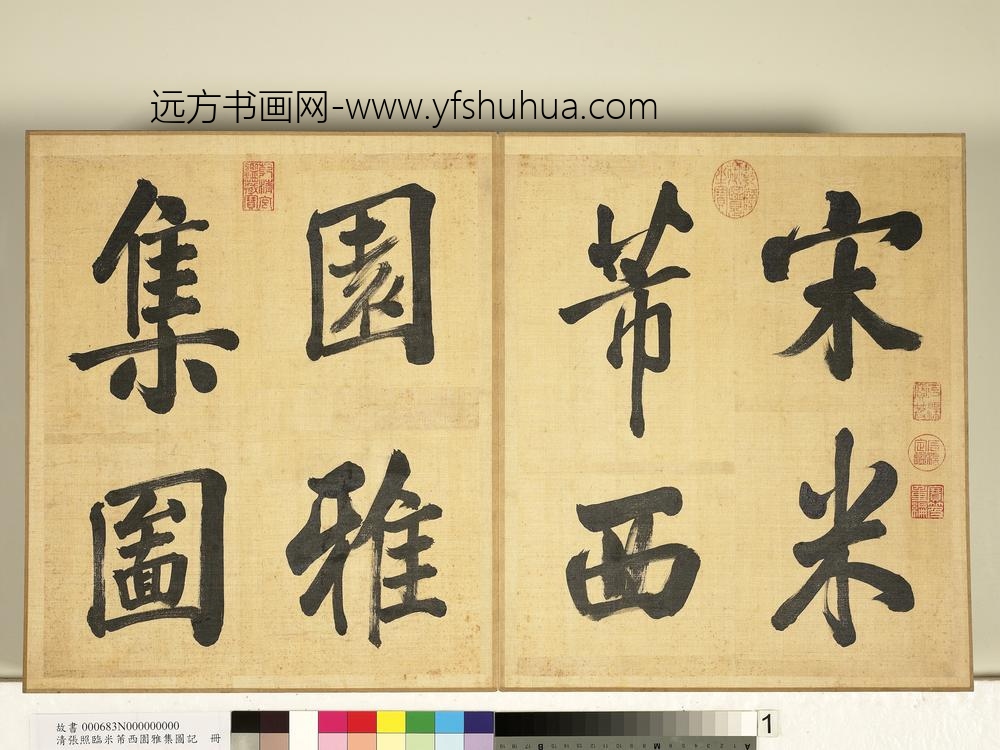 远方书画网-www.yfshuhua.com
宋米
芾西
園雅
集圖
故書 000683N000000000
清張照臨米芾西園雅集圖記 冊
1